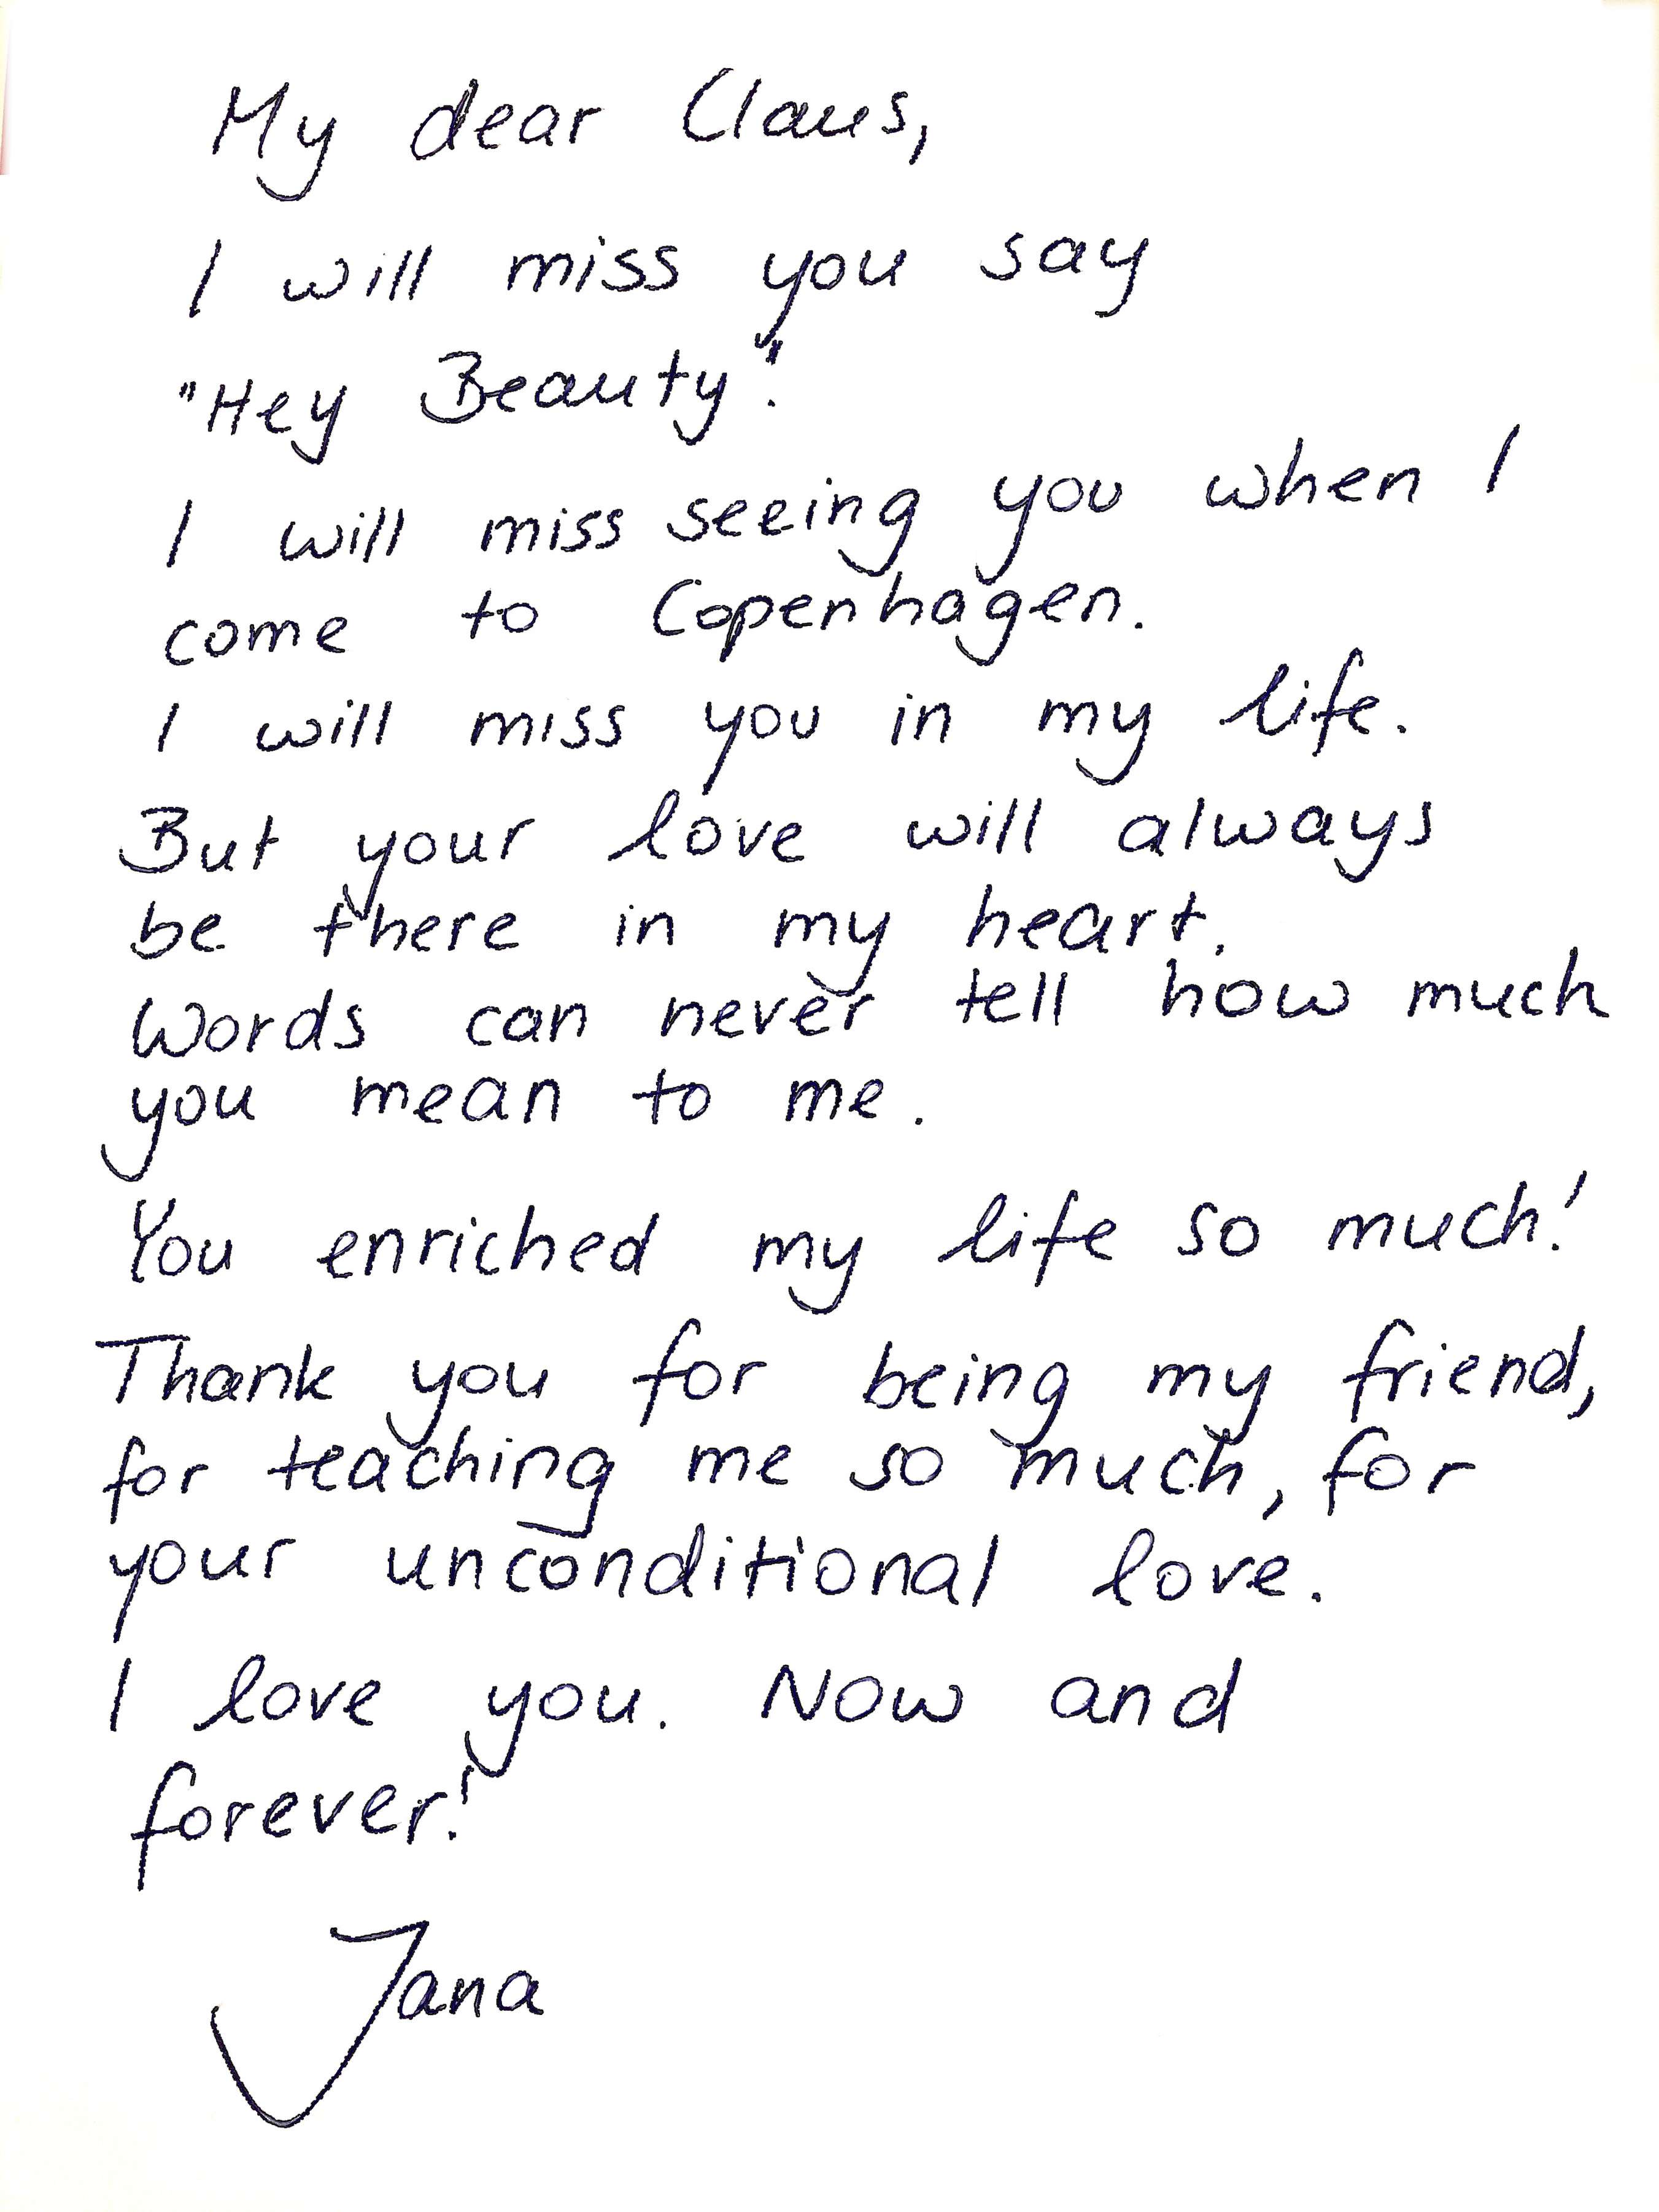 My dear Claus,
I will miss you say
"Hey Beauty".
I will miss seeing you when I
come to Copenhagen.
I will miss you in my life.
But your love will always
be there in my heart.
Words can never tell how much
you mean to me.
You enriched my life so much!
Thank you for being my friend,
for teaching me so much, for
your unconditional love.
I love you. Now and
forever!
Jana